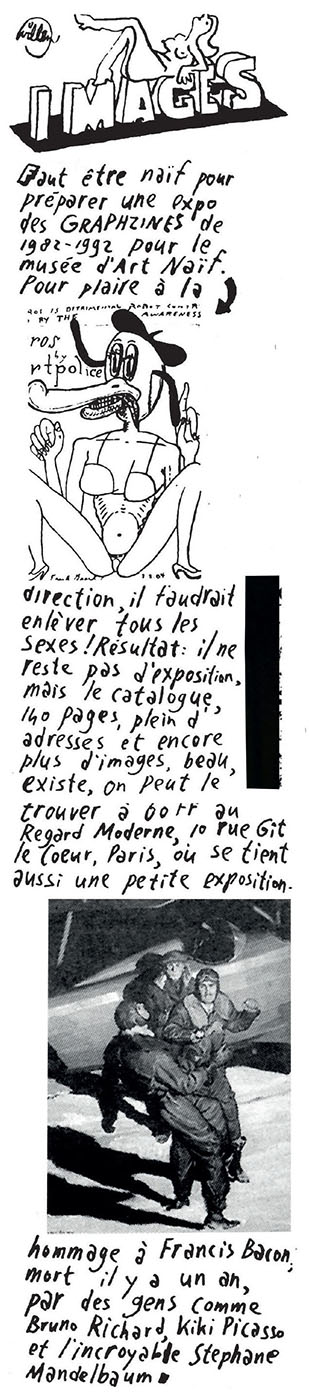 Willem
IMAGES
Faut être naïf pour
préparer une expo
des GRAPHZINES de
1982-1992 pour le
musée d'Art Naïf.
Pour plaire à la
IS DETRIMENTAL ROBOT CONTR
BY THE AWARENESS
ros
by
rtpolice
direction, il faudrait
enlèver tous les
sexes! Résultat: il ne
reste pas d'exposition,
mais le catalogue,
140 pages, plein d'
adresses et encore
plus d'images, beau,
existe, on peut le
trouver à 60 FF au
Regard Moderne, 10 rue Git
le Coeur, Paris, où se tient
aussi une petite exposition.
hommage à Francis Bacon,
mort il y a un an,
par des gens comme
Bruno Richard, Kiki Picasso
et l'incroyable Stephane
Mandelbaum